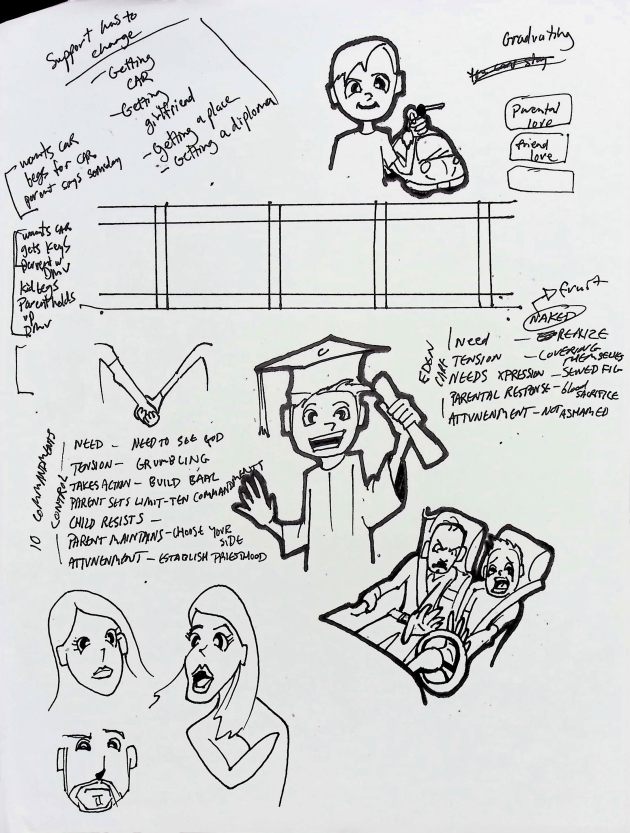 Support has to
change
- Getting
CAR
- Getting
girlfriend
- getting a place
- Getting a diploma
Graduating
Parental
love
friend
love
wants CAR
begs for CAR
parent says someday
wants CAR
gets keys
parent w/
DMV
kid begs
Parent holds
up
DMV
Fruit
NAKED
EDEN
CARE
Need - REALIZE
TENSION - COVERING
THEMSELVES
NEEDS XPRESSION - SEWED FIG
PARENTAL RESPONSE - blood
SACRIFICE
ATTUNENMENT - NOT ASHAMED
10 COMMANDMENTS
CONTROL
NEED - NEED TO SEE GOD
TENSION - GRUMBLING
TAKES ACTION - BUILD BAAL
PARENT SETS LIMIT - TEN COMMANDMENT
CHILD RESISTS -
PARENT MAINTAINS - CHOOSE YOUR
SIDE
ATTUNENMENT - ESTABLISH PRIESTHOOD